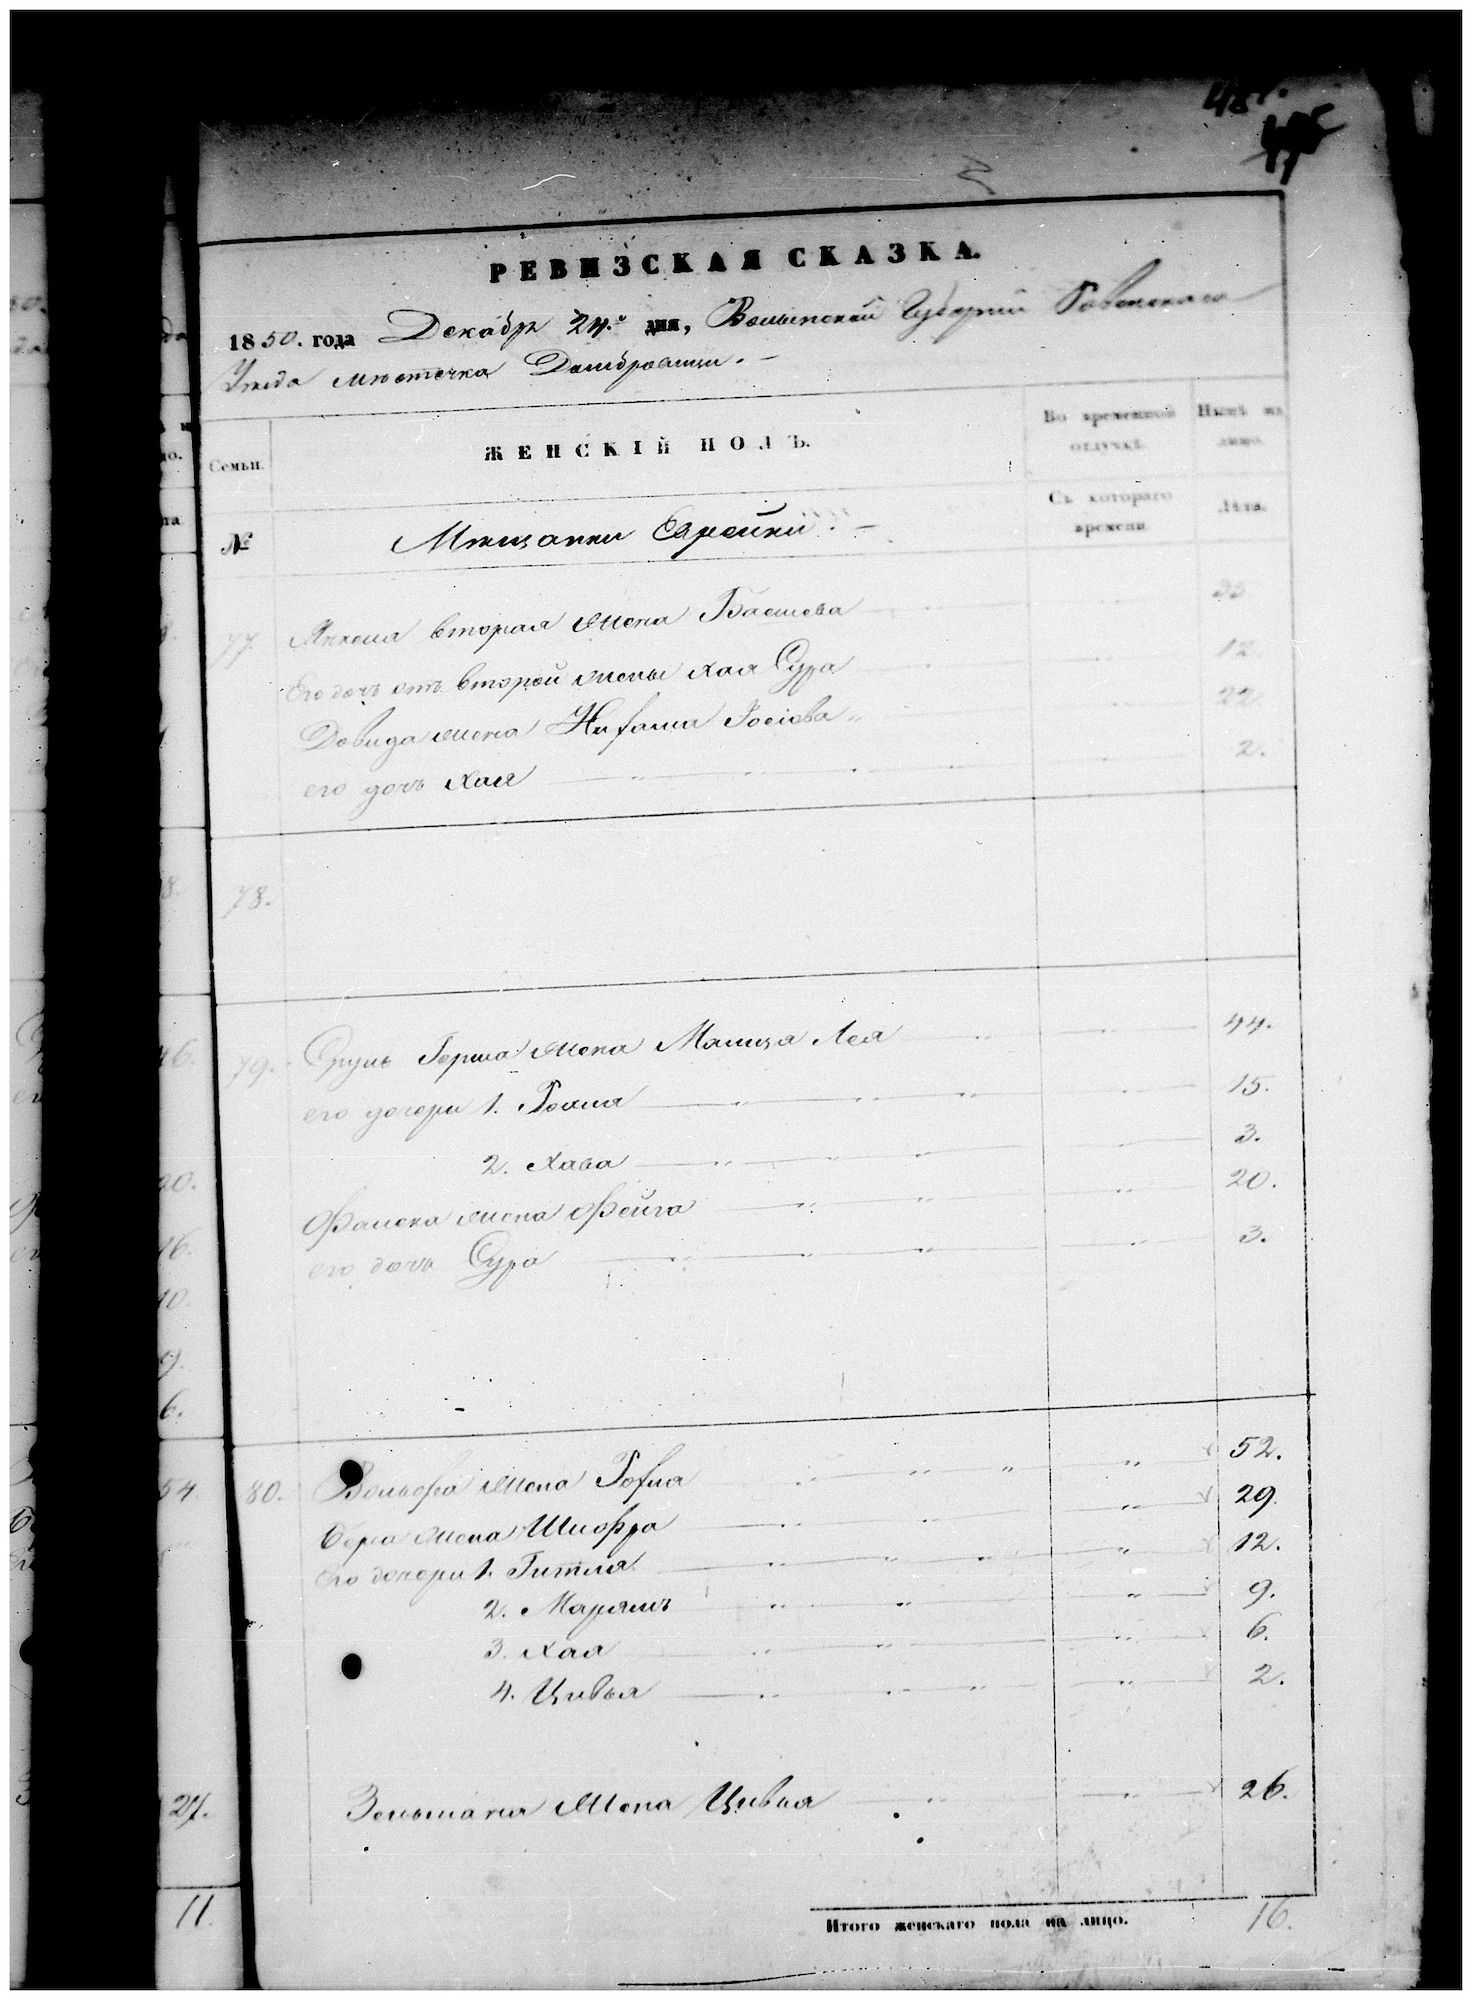 РЕВИЗСКАЯ СКАЗКА.
1850. года Декабря 24.го дня, Волынской Губерніи Ровенскаго
Уезда местечка Домбровицы. —
Семьи.
ЖЕНСКІЙ ПОЛЪ.
Во временной отлучкѣ.
Нынѣ на лицо.
№
Мещанки Еврейки. —
Съ котораго времени.
Лѣта.
77. Янкеля вторая жена Басшева 30.
Его дочь отъ второй жены Хая Сура 12.
Довида жена Ицковова 22.
его дочь Хая 2.
78.
79. Сруль Герша жена Малица Лея 44.
его дочери 1. Роиля 15.
2. Хава 3.
жена Фейга 20.
его дочь Сура 3.
80. Вольфа жена Рохля 52.
Бера жена Шифра 29.
Его дочери 1. Гитля 12.
2. Марьямъ 9.
3. Хая 6.
4. Цивья 2.
Зельмана жена Цивья 26.
Итого женскаго пола на лицо. 16.
27.
11.